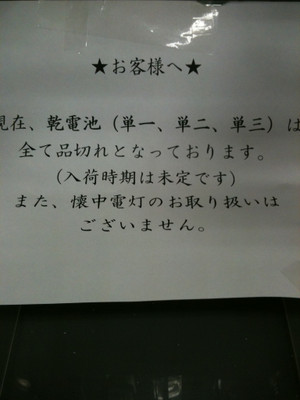 ★お客様へ★
現在、乾電池（単一、単二、単三）は
全て品切れとなっております。
（入荷時期は未定です）
また、懐中電灯のお取り扱いは
ございません。